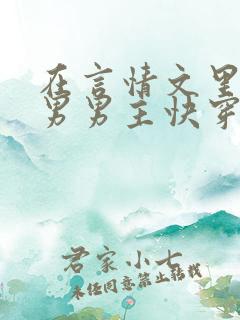 在言情文里
男男主快穿
君家小七
未经同意禁止转载